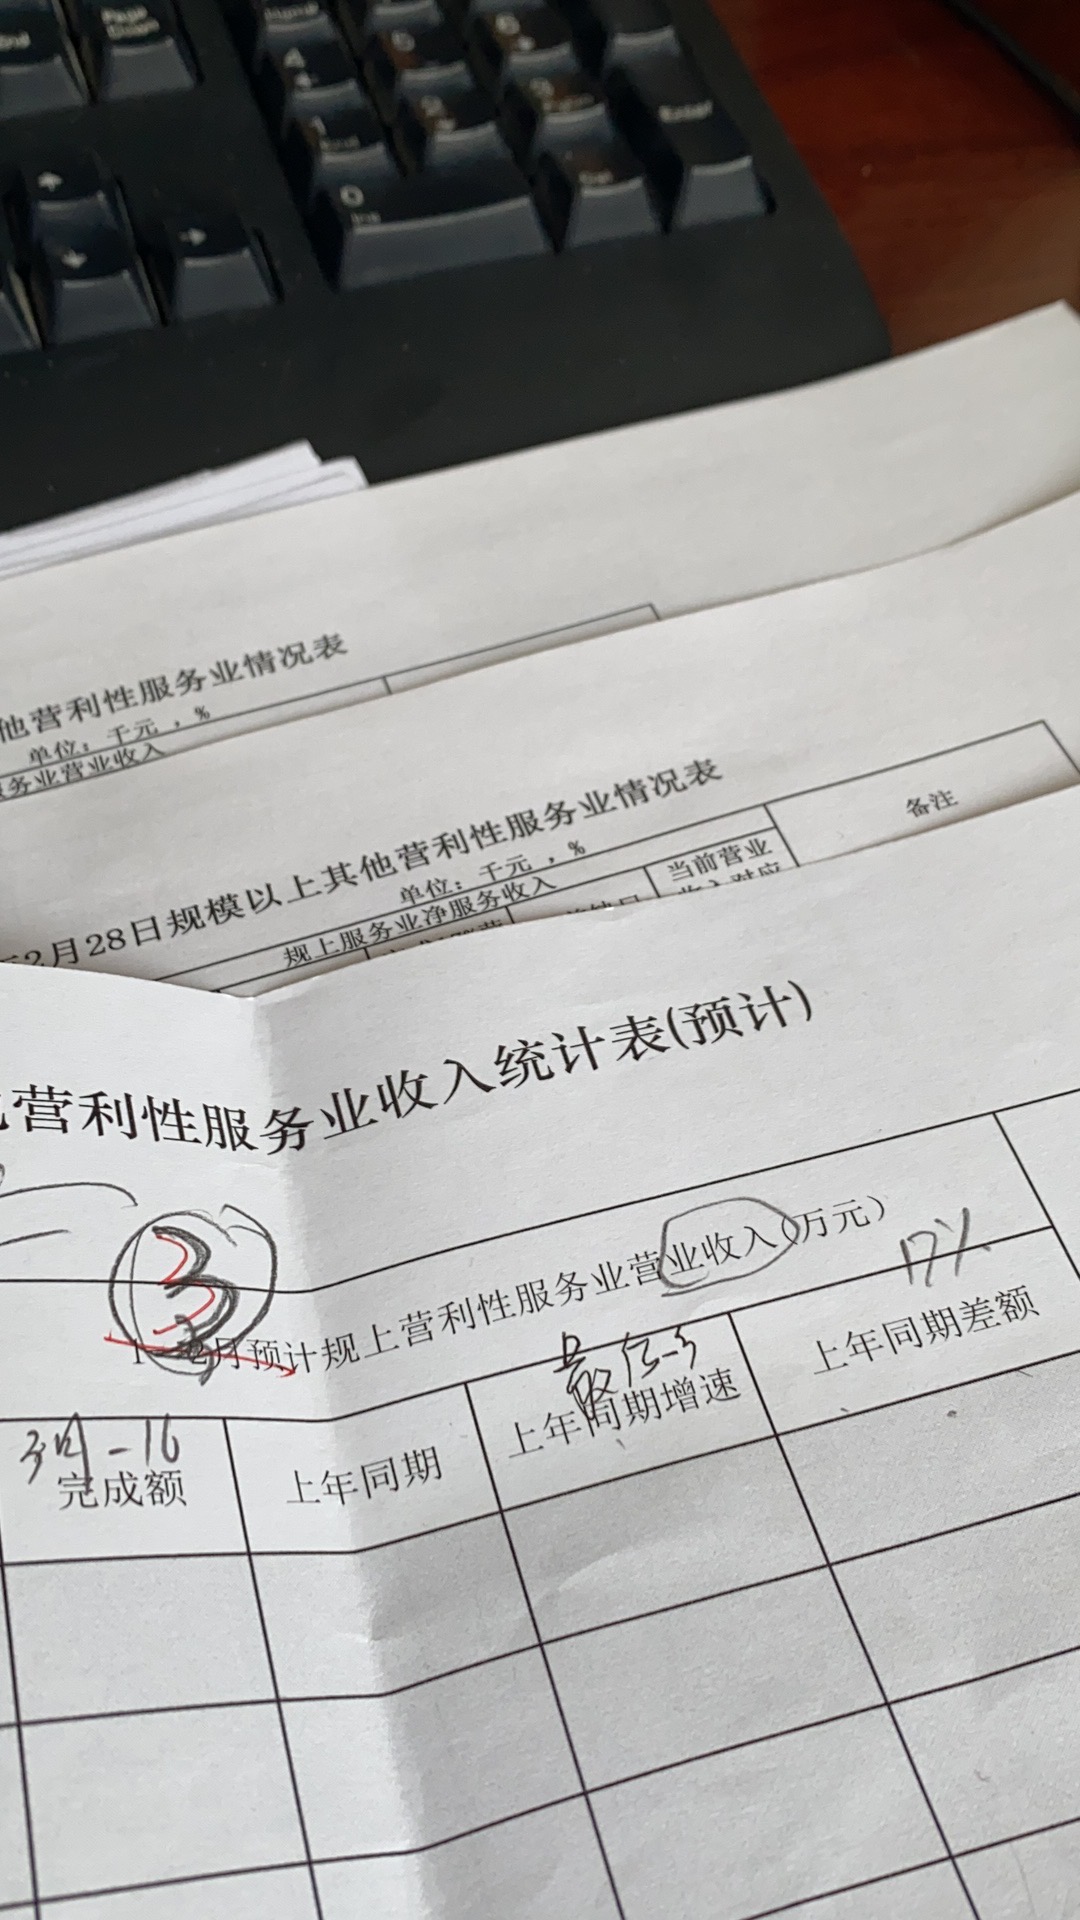 Page
Down
End
4
5
6
1
End
2
3
PgDn
Enter
0
Ins
Del
他营利性服务业情况表
单位：千元，%
服务业营业收入
年2月28日规模以上其他营利性服务业情况表
单位：千元，%
备注
规上服务业净服务收入
当前营业
收入对应
营利性服务业收入统计表(预计)
3
1-2月预计规上营利性服务业营业收入（万元）
17%
-16
完成额
上年同期
上年同期增速
上年同期差额